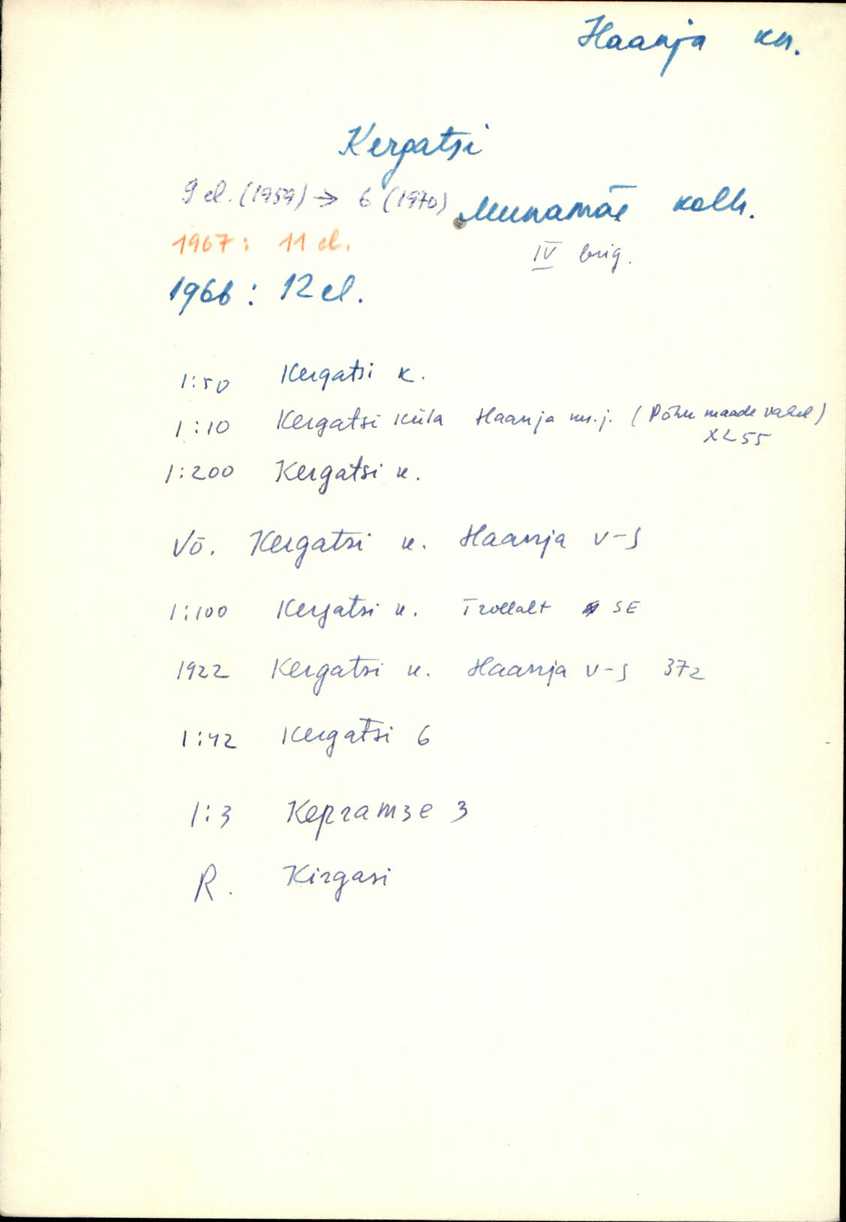 Haanja kn.
Kergatsi
9 el. (1959) → 6 (1970) Munamäe kolh.
1967: 11 el. IV brig.
1966: 12 el.
1:50 Kergatsi k.
1:10 Kergatsi küla Haanja (Põhu maade vahel)
XL 55
1:200 Kergatsi k.
Võ. Kergatsi k. Haanja v-s
1:100 Kergatsi k. SE
1922 Kergatsi k. Haanja v-s 372
1:42 Kergatsi 6
1:3 Кергатзе 3
R. Kirgasi